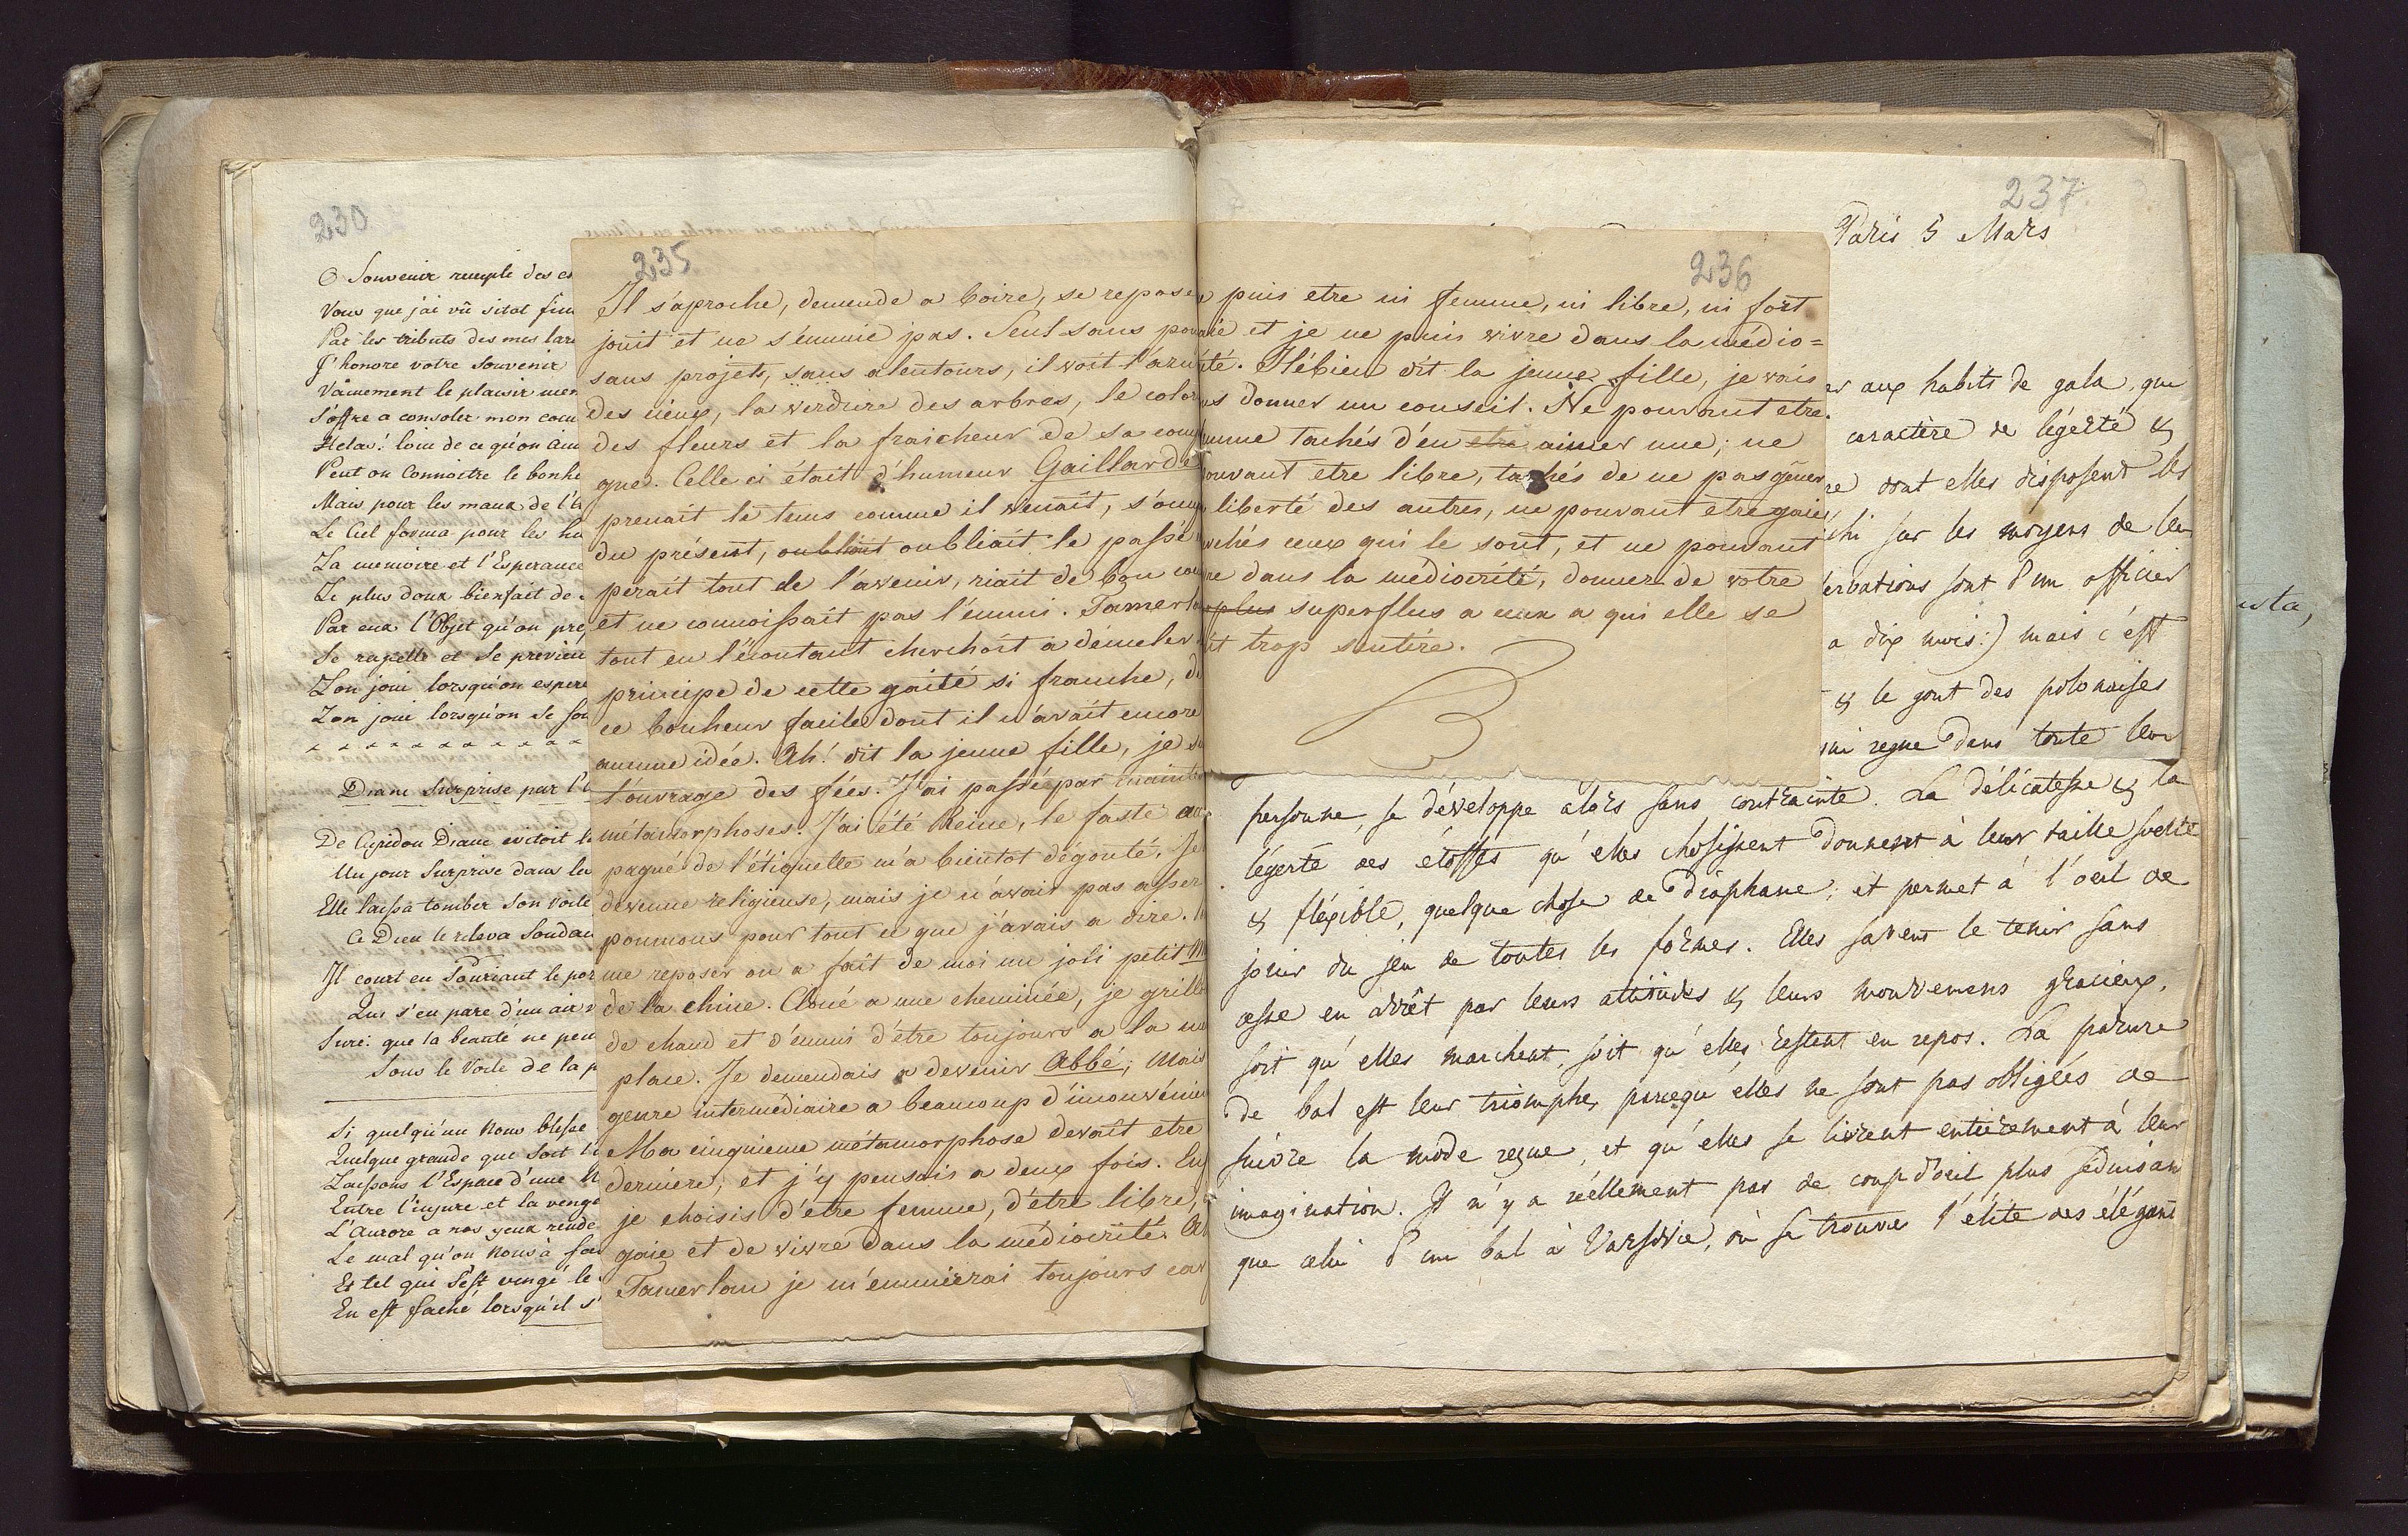 230
O Souvenir remple des
Vous que j'ai vû sitot
Par les tributs des mes
J'honore votre Souvenir
Vainement le plaisir
S'offre a consoler mon
Helas! loin de ce qu'on
Peut on Connoitre le
Mais pour les maux de
Le Ciel forma pour les
La memoire et l'Esperance
Le plus doux bienfait de
Par eux l'Objet qu'on
Se rapelle et Se
L'on joui lorsqu'on
L'on joui lorsqu'on Se
Diane Surprise par
De Cupidon Diane evitoit
Un jour Surprise dans
Elle laissa tomber Son Voile
Ce Dieu le releva
Il court en Souriant le
Qui s'en pare d'un air
Sure: que la beauté ne
Sous le Voile de la
Si quelqu'un Nous blesse
Quelque grande que Soit
Laissons l'Espace d'une
Entre l'injure et la
L'Aurore a nos yeux
Le mal qu'on Nous à
Et tel qui S'est vengé le
En est faché lorsqu'il
235
Il s'aproche, demende a boire, se repose
jouit et ne s'ennuie pas. Seul sans
sans projets, sans alentours, il voit
des cieux, la verdure des arbres, le
des fleurs et la fraicheur de sa
gue. Celle ci était d'humeur Gaillarde
prenait le tems comme il venait,
du présent, oubliait oubliait le passé
pérait tout de l'avenir, riait de bon
et ne connoissait pas l'ennui.
tout en l'écoutant cherchoit a démeler
principe de cette gaité si franche,
ce bonheur facile dont il n'avait encore
aucune idée. Ah! dit la jeune fille, je
l'ouvrage des fées. J'ai passé par
métamorphoses. J'ai été Reine, le faste
pagné de l'étiquette m'a bientot dégouté.
devenue religieuse, mais je n'avais pas
poumons pour tout ce que j'avais a dire.
me reposer on a fait de moi un joli petit
de la chine. Cloué a une cheminée, je
de chaud et d'ennui d'être toujours a la
place. Je demendais a devenir Abbé; Mais
genre intermédiaire a beaucoup
Ma cinquieme métamorphose devait etre
derniere, et j'y pensais a deux fois.
je choisis d'etre femme, d'etre libre,
gaie et de vivre dans la médiocrité.
Tamerlan je m'ennuierai toujours
236
puis etre ni femme, ni libre, ni fort
et je ne puis vivre dans la médio=
Hébien dit la jeune fille, je vais
donner un conseil. Ne pouvant etre
tachés d'en etre aimer une; ne
etre libre, tachés de ne pas gêner
liberté des autres, ne pouvant etre gaie
ceux qui le sont, et ne pouvant
dans la médiocrité, donner de votre
superflus a ceux a qui elle se
trop sentire.
237
Paris 5 Mars
aux habits de gala, que
caractère de légèrté &
dont elles disposent les
sur les moyens de
sont d'un officier
a dix mois:) mais c'est
& le gout des polonaises
regne dans toute leur
personne, se développe alors sans contrainte. La délicatesse & la
légerté des étoffes qu'elles choisissent donnent à leur taille svelte
& fléxible, quelque chose de diaphane; et permet à l'oeil de
jouir du jeu de toutes les formes. Elles savent le tenir sans
cesse en arrêt par leurs attitudes & leurs mouvemens gracieux,
soit qu'elles marchent, soit qu'elles restent en repos. La parure
de bal est leur triomphe, parcequ'elles ne sont pas obligées de
suivre la mode reçue, et qu'elles se livrent entièrement à leur
imagination. Il n'y a réellement pas de coup d'oeil plus
que celui d'un bal à Varsovie, où se trouve l'élite des